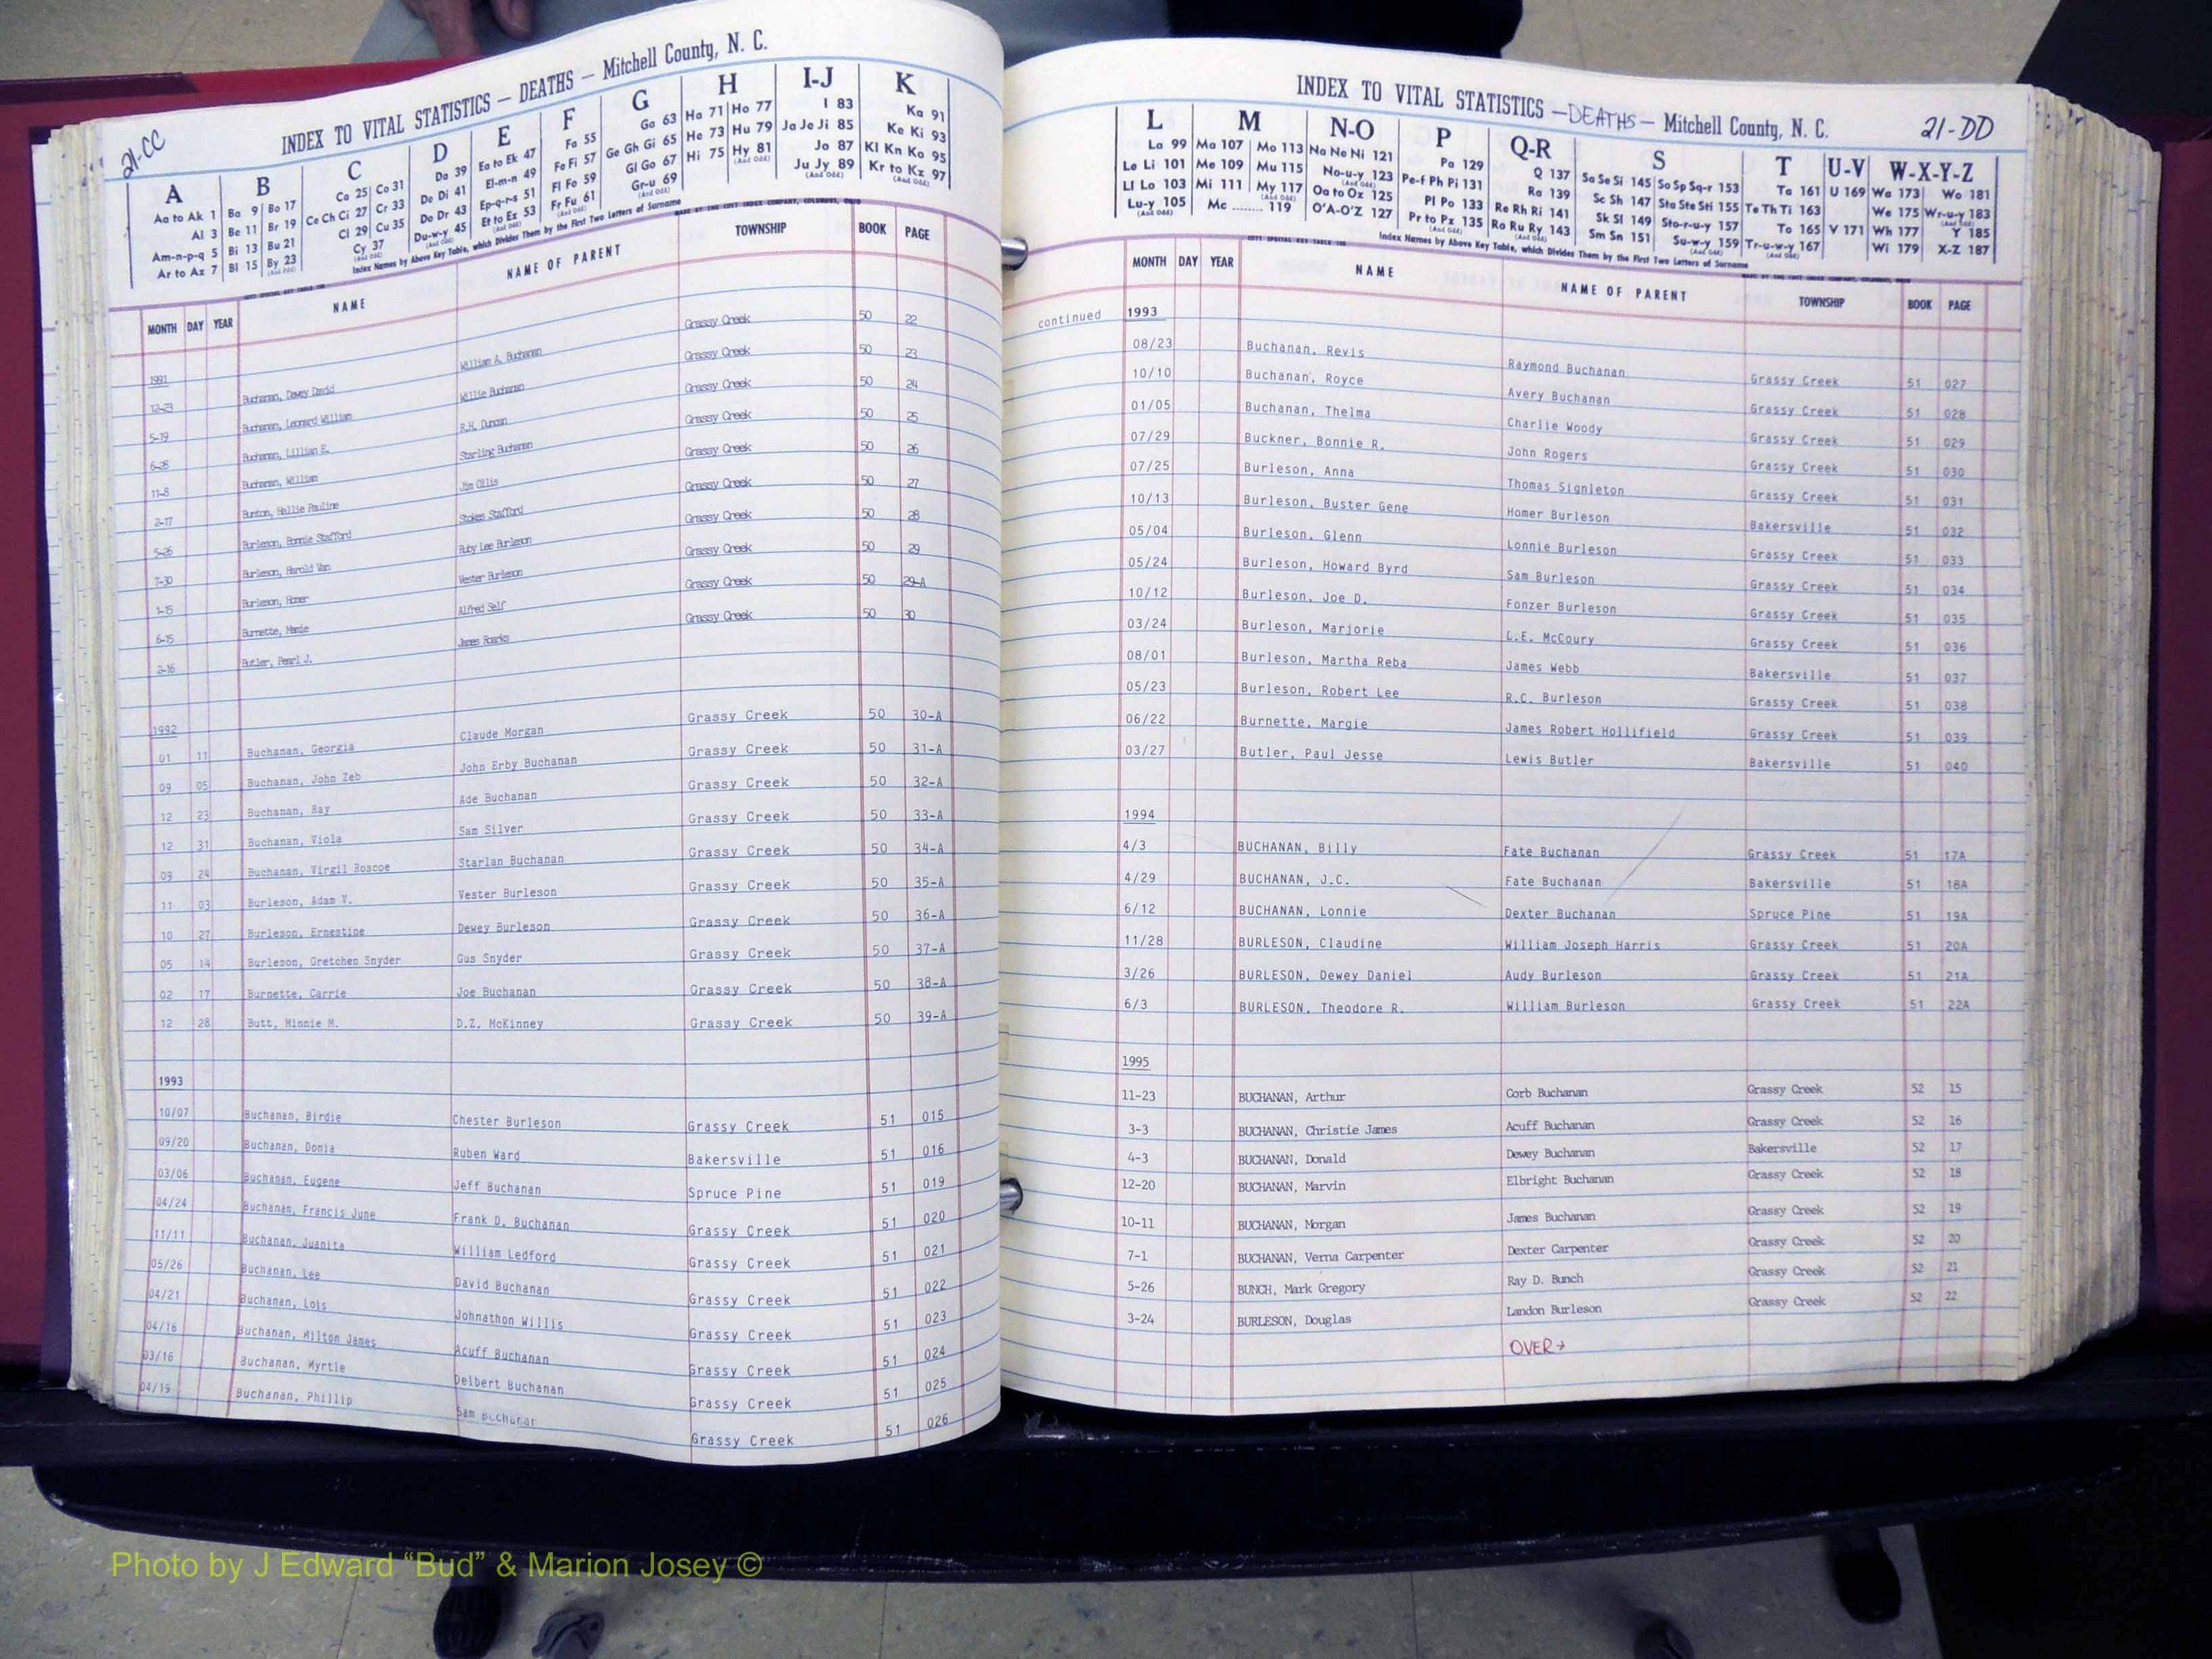 21-CC
INDEX TO VITAL STATISTICS — DEATHS — Mitchell County, N. C.
A B C D E F G H I-J K
Aa to Ak 1 Ba 9 Bo 17 Ca 25 Co 31 Da 39 Ea to Ek 47 Fa 55 Ga 63 Ha 71 Ho 77 I 83 Ka 91
Al 3 Be 11 Br 19 Ce Ch Ci 27 Cr 33 De Di 41 El-m-n 49 Fe Fi 57 Ge Gh Gi 65 He 73 Hu 79 Ja Je Ji 85 Ke Ki 93
Am-n-p-q 5 Bi 13 Bu 21 Cl 29 Cu 35 Do Dr 43 Ep-q-r-s 51 Fl Fo 59 Gl Go 67 Hi 75 Hy 81 (And Odd) Jo 87 Kl Kn Ko 95
Ar to Az 7 Bl 15 By 23 (And Odd) Cy 37 (And Odd) Du-w-y 45 (And Odd) Et to Ez 53 (And Odd) Fr Fu 61 (And Odd) Gr-u 69 (And Odd) Ju Jy 89 (And Odd) Kr to Kz 97 (And Odd)
Index Names by Above Key Table, which Divides Them by the First Two Letters of Surname
MADE BY THE COTT INDEX COMPANY, COLUMBUS, OHIO
MONTH DAY YEAR NAME NAME OF PARENT TOWNSHIP BOOK PAGE
1991
12-23 Buchanan, Dewey David William A. Buchanan Grassy Creek 50 22
5-19 Buchanan, Leonard William Willie Buchanan Grassy Creek 50 23
6-28 Buchanan, Lillian E. R.H. Duncan Grassy Creek 50 24
11-8 Buchanan, William Starling Buchanan Grassy Creek 50 25
2-17 Bunton, Hallie Pauline Jim Ollis Grassy Creek 50 26
5-26 Burleson, Bonnie Stafford Stokes Stafford Grassy Creek 50 27
7-30 Burleson, Harold Van Ruby Lee Burleson Grassy Creek 50 28
1-15 Burleson, Homer Vester Burleson Grassy Creek 50 29
6-15 Burnette, Mamie Alfred Self Grassy Creek 50 29-A
2-16 Butler, Pearl J. James Roarks Grassy Creek 50 30
1992
01 11 Buchanan, Georgia Claude Morgan Grassy Creek 50 30-A
09 05 Buchanan, John Zeb John Erby Buchanan Grassy Creek 50 31-A
12 23 Buchanan, Ray Ade Buchanan Grassy Creek 50 32-A
12 31 Buchanan, Viola Sam Silver Grassy Creek 50 33-A
09 24 Buchanan, Virgil Roscoe Starlan Buchanan Grassy Creek 50 34-A
11 03 Burleson, Adam V. Vester Burleson Grassy Creek 50 35-A
10 27 Burleson, Ernestine Dewey Burleson Grassy Creek 50 36-A
05 14 Burleson, Gretchen Snyder Gus Snyder Grassy Creek 50 37-A
02 17 Burnette, Carrie Joe Buchanan Grassy Creek 50 38-A
12 28 Butt, Minnie M. D.Z. McKinney Grassy Creek 50 39-A
1993
10/07 Buchanan, Birdie Chester Burleson Grassy Creek 51 015
09/20 Buchanan, Donia Ruben Ward Bakersville 51 016
03/06 Buchanan, Eugene Jeff Buchanan Spruce Pine 51 019
04/24 Buchanan, Francis June Frank D. Buchanan Grassy Creek 51 020
11/11 Buchanan, Juanita William Ledford Grassy Creek 51 021
05/26 Buchanan, Lee David Buchanan Grassy Creek 51 022
04/21 Buchanan, Lois Johnathon Willis Grassy Creek 51 023
04/16 Buchanan, Milton James Acuff Buchanan Grassy Creek 51 024
03/16 Buchanan, Myrtle Delbert Buchanan Grassy Creek 51 025
04/19 Buchanan, Phillip Sam Buchanan Grassy Creek 51 026
INDEX TO VITAL STATISTICS — DEATHS — Mitchell County, N. C.
21-DD
L M N-O P Q-R S T U-V W-X-Y-Z
La 99 Ma 107 Mo 113 Na Ne Ni 121 Pa 129 Q 137 Sa Se Si 145 So Sp Sq-r 153 Ta 161 U 169 Wa 173 Wo 181
Le Li 101 Me 109 Mu 115 No-u-y 123 (And Odd) Pe-f Ph Pi 131 Ra 139 Sc Sh 147 Sta Ste Sti 155 Te Th Ti 163 We 175 Wr-u-y 183 (And Odd)
Ll Lo 103 Mi 111 My 117 (And Odd) Oa to Oz 125 Pl Po 133 Re Rh Ri 141 Sk Sl 149 Sto-r-u-y 157 To 165 V 171 Wh 177 Y 185
Lu-y 105 (And Odd) Mc ........ 119 O'A-O'Z 127 Pr to Pz 135 (And Odd) Ro Ru Ry 143 (And Odd) Sm Sn 151 Su-w-y 159 (And Odd) Tr-u-w-y 167 (And Odd) Wi 179 X-Z 187
Index Names by Above Key Table, which Divides Them by the First Two Letters of Surname
MONTH DAY YEAR NAME NAME OF PARENT TOWNSHIP BOOK PAGE
continued 1993
08/23 Buchanan, Revis Raymond Buchanan Grassy Creek 51 027
10/10 Buchanan, Royce Avery Buchanan Grassy Creek 51 028
01/05 Buchanan, Thelma Charlie Woody Grassy Creek 51 029
07/29 Buckner, Bonnie R. John Rogers Grassy Creek 51 030
07/25 Burleson, Anna Thomas Signleton Grassy Creek 51 031
10/13 Burleson, Buster Gene Homer Burleson Bakersville 51 032
05/04 Burleson, Glenn Lonnie Burleson Grassy Creek 51 033
05/24 Burleson, Howard Byrd Sam Burleson Grassy Creek 51 034
10/12 Burleson, Joe D. Fonzer Burleson Grassy Creek 51 035
03/24 Burleson, Marjorie L.E. McCoury Grassy Creek 51 036
08/01 Burleson, Martha Reba James Webb Bakersville 51 037
05/23 Burleson, Robert Lee R.C. Burleson Grassy Creek 51 038
06/22 Burnette, Margie James Robert Hollifield Grassy Creek 51 039
03/27 Butler, Paul Jesse Lewis Butler Bakersville 51 040
1994
4/3 BUCHANAN, Billy Fate Buchanan Grassy Creek 51 17A
4/29 BUCHANAN, J.C. Fate Buchanan Bakersville 51 18A
6/12 BUCHANAN, Lonnie Dexter Buchanan Spruce Pine 51 19A
11/28 BURLESON, Claudine William Joseph Harris Grassy Creek 51 20A
3/26 BURLESON, Dewey Daniel Audy Burleson Grassy Creek 51 21A
6/3 BURLESON, Theodore R. William Burleson Grassy Creek 51 22A
1995
11-23 BUCHANAN, Arthur Corb Buchanan Grassy Creek 52 15
3-3 BUCHANAN, Christie James Acuff Buchanan Grassy Creek 52 16
4-3 BUCHANAN, Donald Dewey Buchanan Bakersville 52 17
12-20 BUCHANAN, Marvin Elbright Buchanan Grassy Creek 52 18
10-11 BUCHANAN, Morgan James Buchanan Grassy Creek 52 19
7-1 BUCHANAN, Verna Carpenter Dexter Carpenter Grassy Creek 52 20
5-26 BUNCH, Mark Gregory Ray D. Bunch Grassy Creek 52 21
3-24 BURLESON, Douglas Landon Burleson Grassy Creek 52 22
OVER→
Photo by J Edward “Bud” & Marion Josey ©